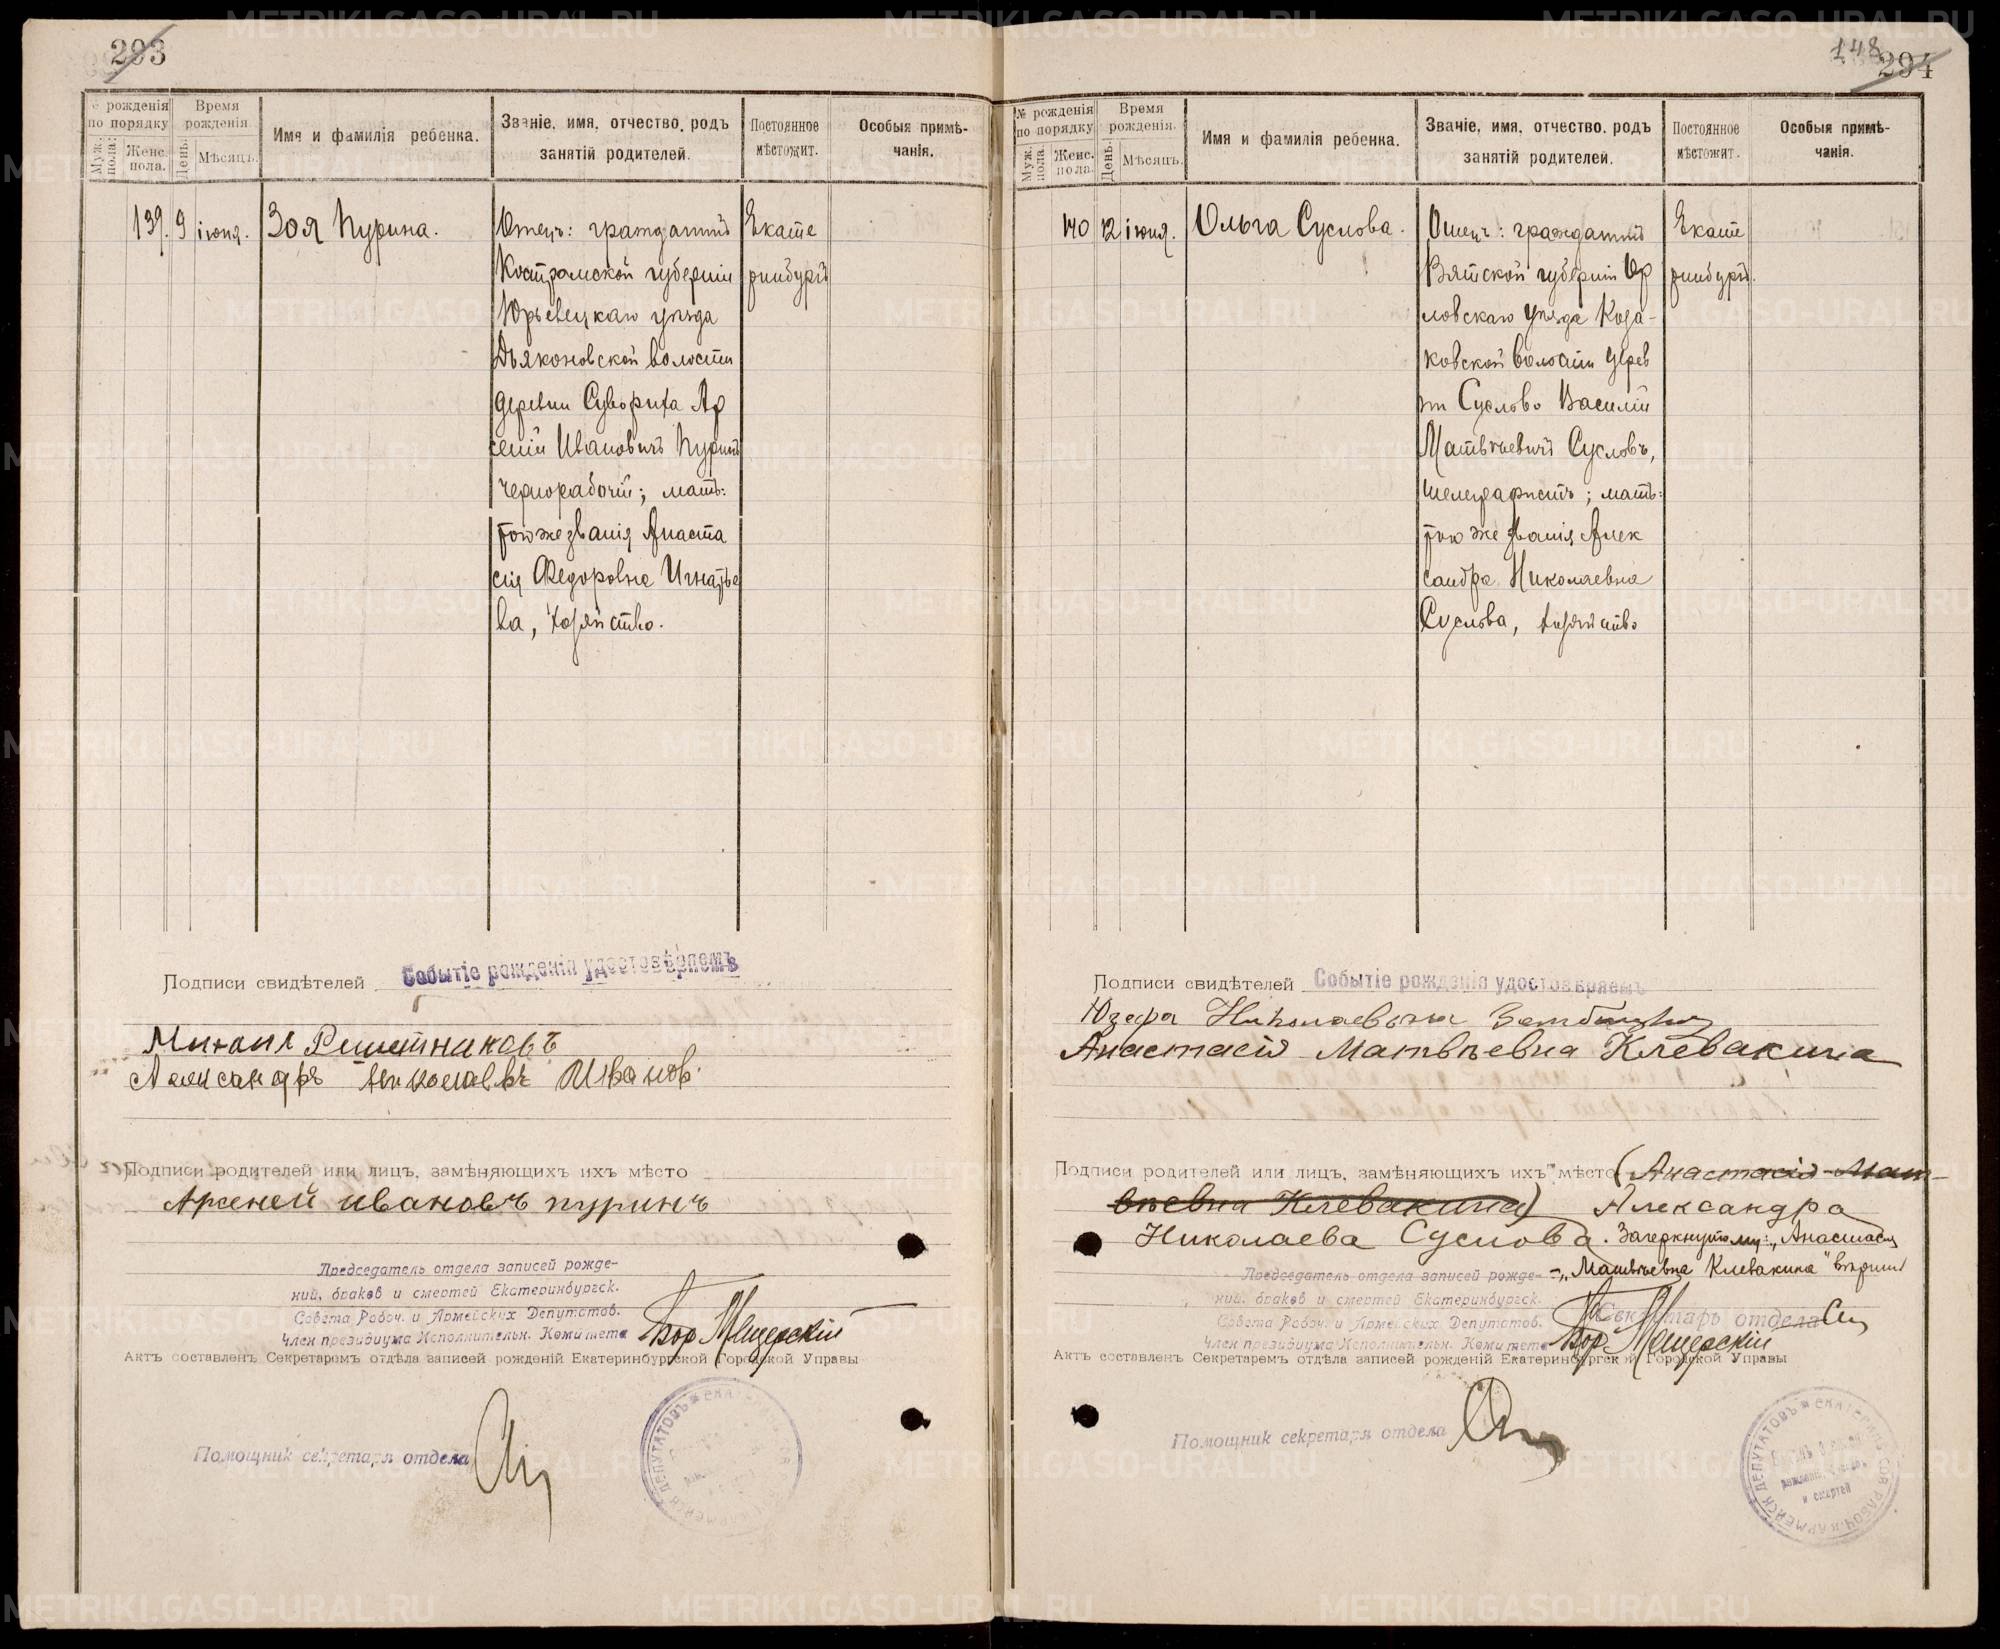 293
№ рожденія по порядку
Муж. пола.
Женс. пола.
Время рожденія.
День.
Мѣсяцъ.
Имя и фамилія ребенка.
Званіе, имя, отчество, родъ
занятій родителей.
Постоянное
мѣстожит.
Особыя примѣ-
чанія.
139. 9 іюня. Зоя Пурина.
Отецъ: гражданинъ
Костромской губерніи
Юрьевецкаго уѣзда
Дьяконовской волости
деревни Сувориха Ар
сеній Ивановичъ Пуринъ
чернорабочій; мать:
того же званія Анаста
сія Федоровна Игнатье
ва, хозяйство.
Екате
ринбургъ
Подписи свидѣтелей Событіе рожденія удостовѣряемъ
Михаил Решетниковъ
Александръ Николаевъ Иванов.
Подписи родителей или лицъ, замѣняющихъ ихъ мѣсто
Арсеней Ивановъ пуринъ
Председатель отдела записей рожде-
ний, браков и смертей Екатеринбургск.
Совета Рабоч. и Армейских Депутатов.
Член президиума Исполнительн. Комитета Бор. Мещерскій
Актъ составленъ Секретаремъ отдѣла записей рожденій Екатеринбургской Городской Управы
Помощник секретаря отдела
148
294
№ рожденія по порядку
Муж. пола.
Женс. пола.
Время рожденія.
День.
Мѣсяцъ.
Имя и фамилія ребенка.
Званіе, имя, отчество, родъ
занятій родителей.
Постоянное
мѣстожит.
Особыя примѣ-
чанія.
140 12 іюня. Ольга Суслова.
Отецъ: гражданинъ
Вятской губерніи Ор
ловскаго уѣзда Коза-
ковской волости дерев
ни Суслово Василій
Матвѣевичъ Сусловъ,
телеграфистъ; мать:
того же званія Алек
сандра Николаевна
Суслова, хозяйство
Екате
ринбургъ.
Подписи свидѣтелей Событіе рожденія удостовѣряемъ
Юзефа Николаевна
Анастасія Матвѣевна Клевакина
Подписи родителей или лицъ, замѣняющихъ ихъ мѣсто (Анастасія Мат-
вѣевна Клевакина) Александра
Николаева Суслова. Зачеркнутому: „Анастасія
„Матвѣевна Клевакина" вѣрить
Председатель отдела записей рожде-
ний, браков и смертей Екатеринбургск.
Совета Рабоч. и Армейских Депутатов. Секретарь отдела
Член президиума Исполнительн. Комитета Бор. Мещерскій
Актъ составленъ Секретаремъ отдѣла записей рожденій Екатеринбургской Городской Управы
Помощник секретаря отдела
METRIKI.GASO-URAL.RU